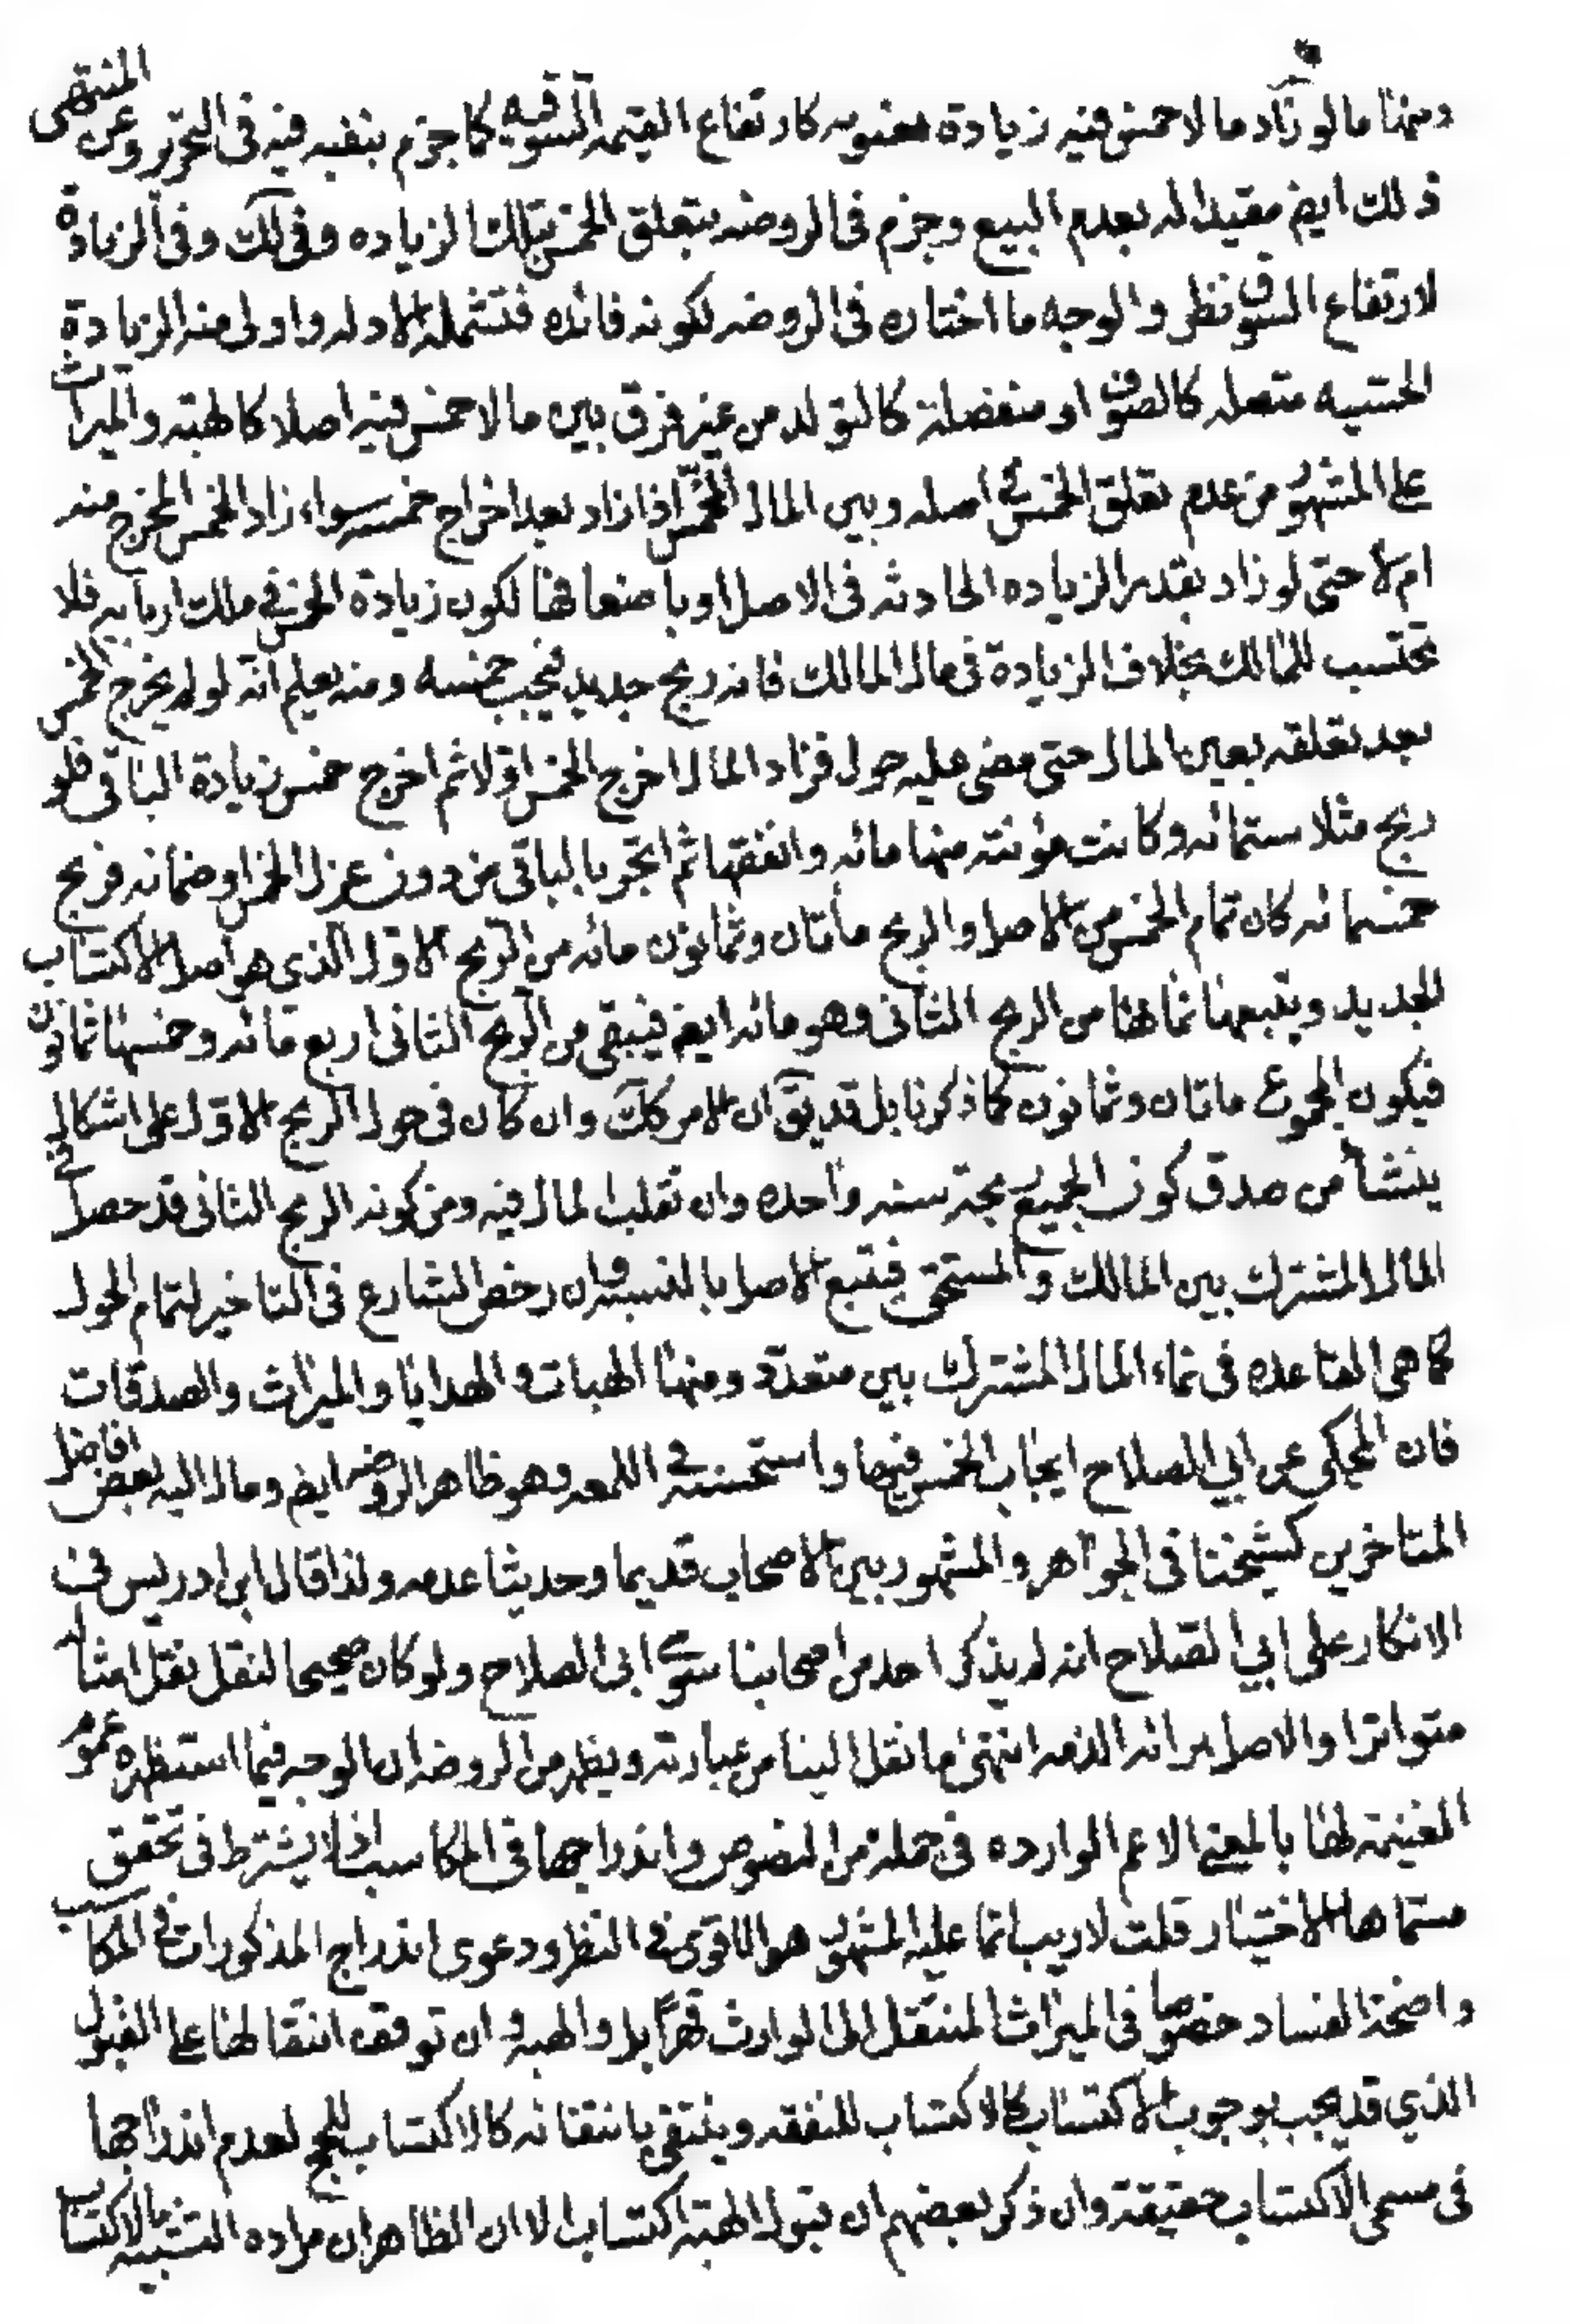 ومنها ما لو زاد ما لا خمس فيه زيادة معنويه كارتفاع القيمه السوقيه كما جزم بنفيه فيه فى التحرير وعن المنتهى
ذلك ايض مقيدا له بعدم البيع وجزم فى الروضه بتعلق الخمس بتلك الزياده وفى لك وفى الزيادة
لارتفاع السوق نظر والوجه ما اختاره فى الروضه لكونه فائده فتشمله الادله واولى منه الزيادة
الحسيه متصله كالصوف او منفصلة كالتولد من غير فرق بين ما لا خمس فيه اصلا كالهبة والميراث
على المشهور من عدم تعلق الخمس فى اصله وبين المال المخمس اذا زاد بعد اخراج خمسه سواء زاد الخمس المخرج منه
ام لا حتى لو زاد بقدر الزياده الحادثه فى الاصل او باضعافها لكون زيادة الخمس فى ملك اربابه فلا
تحتسب للمالك بخلاف الزيادة فى مال المالك فانه ربح جديد فيجب خمسه ومنه يعلم انه لو لم يخرج الخمس
بعد تعلقه بعين المال حتى مضى عليه حول فزاد المال اخرج الخمس اولا ثم اخرج خمس زيادة الباقى فلو
ربح مثلا ستمائه وكانت مؤنته منها مائه وانفقها ثم اتجر بالباقى من دون عزل الخمس او ضمانه فربح
خمسمائه كان تمام الخمس من الاصل والربح مأتان وثمانون مائه من الربح الاول الذى هو اصل الاكتساب
الجديد ويتبعها نماؤها من الربح الثانى وهو مائه ايض فيبقى من الربح الثانى اربع مائه وخمسها ثمانون
فيكون المجموع ماتان وثمانون كما ذكرنا بل قد يق ان الامر كك وان كان فى حول الربح الاول على اشكال
ينشأ من صدق كون الجميع ربح سنه واحده وان تقلب المال فيه ومن كونه الربح الثانى قد حصل فى
المال المشترك بين المالك والمستحق فيتبع الاصل بالنسبه وان رخص الشارع فى التاخير لتمام الحول
كما هى القاعده فى نماء المال المشترك بين متعدد ومنها الهبات والهدايا والميراث والصدقات
فان المحكى عن ابي الصلاح ايجاب الخمس فيها واستحسنه فى اللمعه وهو ظاهر الروضه ايض ومال اليه بعض افاضل
المتاخرين كشيخنا فى الجواهر والمشهور بين الاصحاب قديما وحديثا عدمه ولذا قال ابن ادريس فى
الانكار على ابي الصلاح انه لم يذكر احد من اصحابنا سوى ابى الصلاح ولو كان صحيحا لنقل نقل امثاله
متواترا والاصل برائه الذمه انتهى ما نقل الينا من عبارته ويظهر من الروضه ان الوجه فيما استظهره عموم
الغنيمه لها بالمعنى الاعم الوارده فى جملة من النصوص واندراجها فى المكاسب اذ لا يشترط فى تحقق
مسماها الاختيار قلت لا ريب انما عليه المشهور هو الاقوى فى النظر ودعوى اندراج المذكورات فى المكاسب
واضحة الفساد خصوصا فى الميراث المنتقل الى الوارث قهرا بل والهبه وان توقف انتقالها على القبول
الذي قد يجب بوجوب الاكتساب كالاكتساب للنفقه وينتفى بانتفائه كالاكتساب للحج لعدم اندراجها
فى مسمى الاكتساب حقيقة وان ذكر بعضهم ان قبول الهبة اكتساب الا ان الظاهر ان مراده التشبيه بالاكتساب